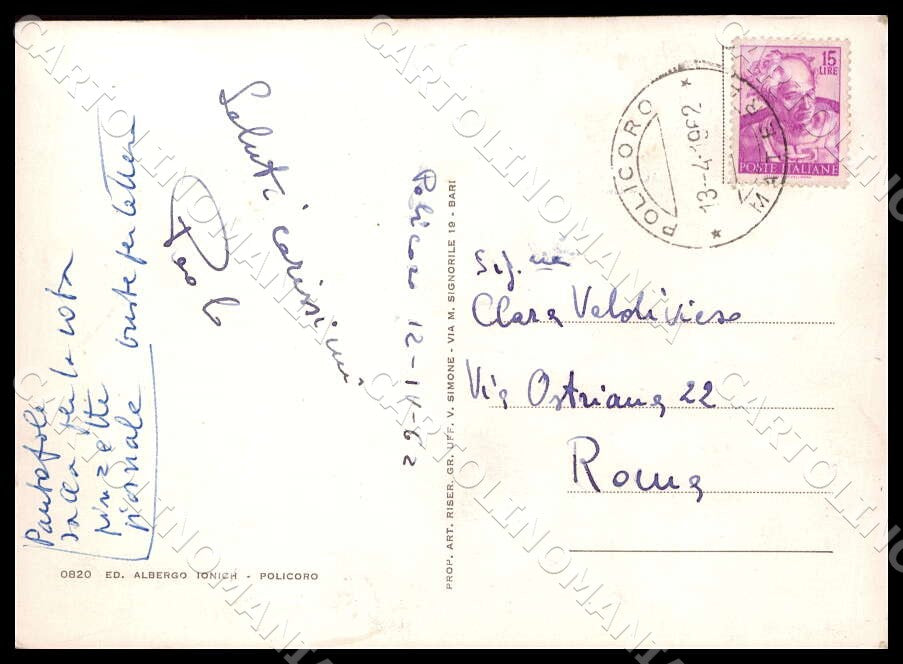 15
LIRE
POSTE ITALIANE
POLICORO
13-4 1962
MATERA
Policoro 12-IV-62
Saluti carissimi
Paolo
Sig.na
Clara Valdivieso
Via Ostriana 22
Roma
Pantofole
sacca per la roba
pinzette
giornale buste per lettera
0820 ED. ALBERGO IONICH - POLICORO
PROP. ART. RISER. GR. UFF. V. SIMONE - VIA M. SIGNORILE 19 - BARI
CARTOLINOMANIA